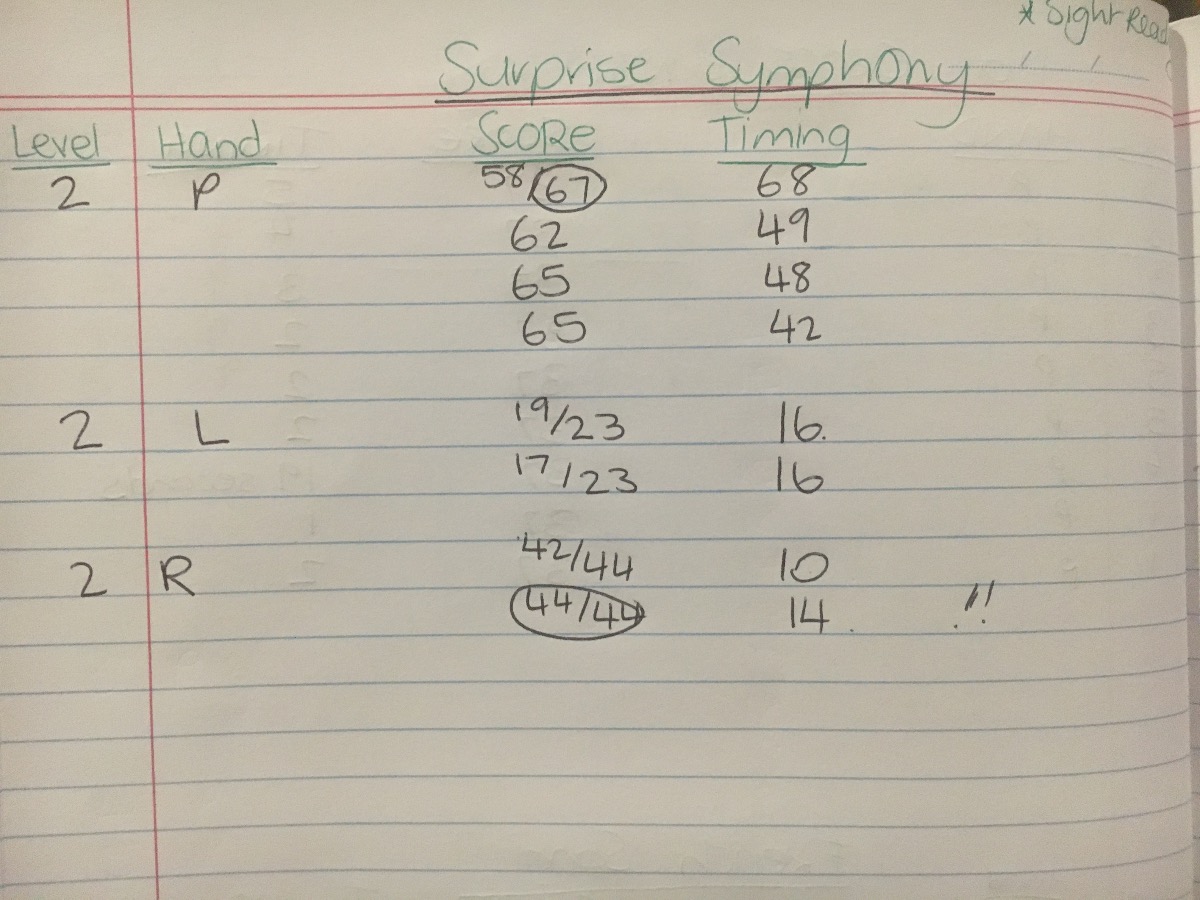 * Sight Read
Surprise Symphony
Level Hand Score Timing
2 P 58/67 68
62 49
65 48
65 42
2 L 19/23 16.
17/23 16
2 R 42/44 10
44/44 14. !!